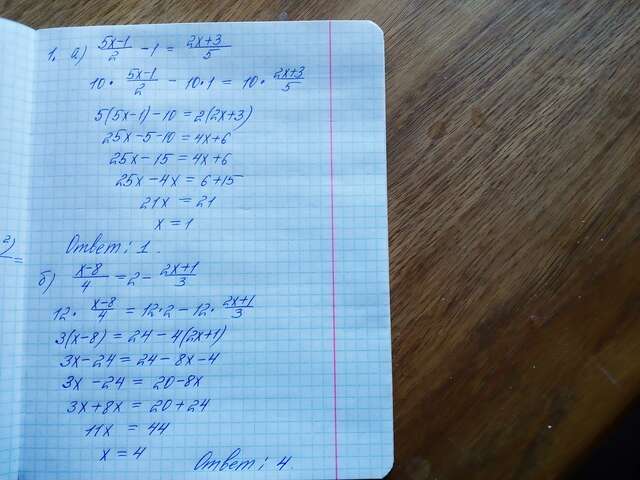 1. а) (5x-1)/2 - 1 = (2x+3)/5
10 · (5x-1)/2 - 10·1 = 10 · (2x+3)/5
5(5x-1)-10 = 2(2x+3)
25x-5-10 = 4x+6
25x-15 = 4x+6
25x-4x = 6+15
21x = 21
x = 1
Ответ: 1.
б) (x-8)/4 = 2 - (2x+1)/3
12 · (x-8)/4 = 12·2 - 12 · (2x+1)/3
3(x-8) = 24 - 4(2x+1)
3x-24 = 24-8x-4
3x-24 = 20-8x
3x+8x = 20+24
11x = 44
x = 4
Ответ: 4.
2)
=